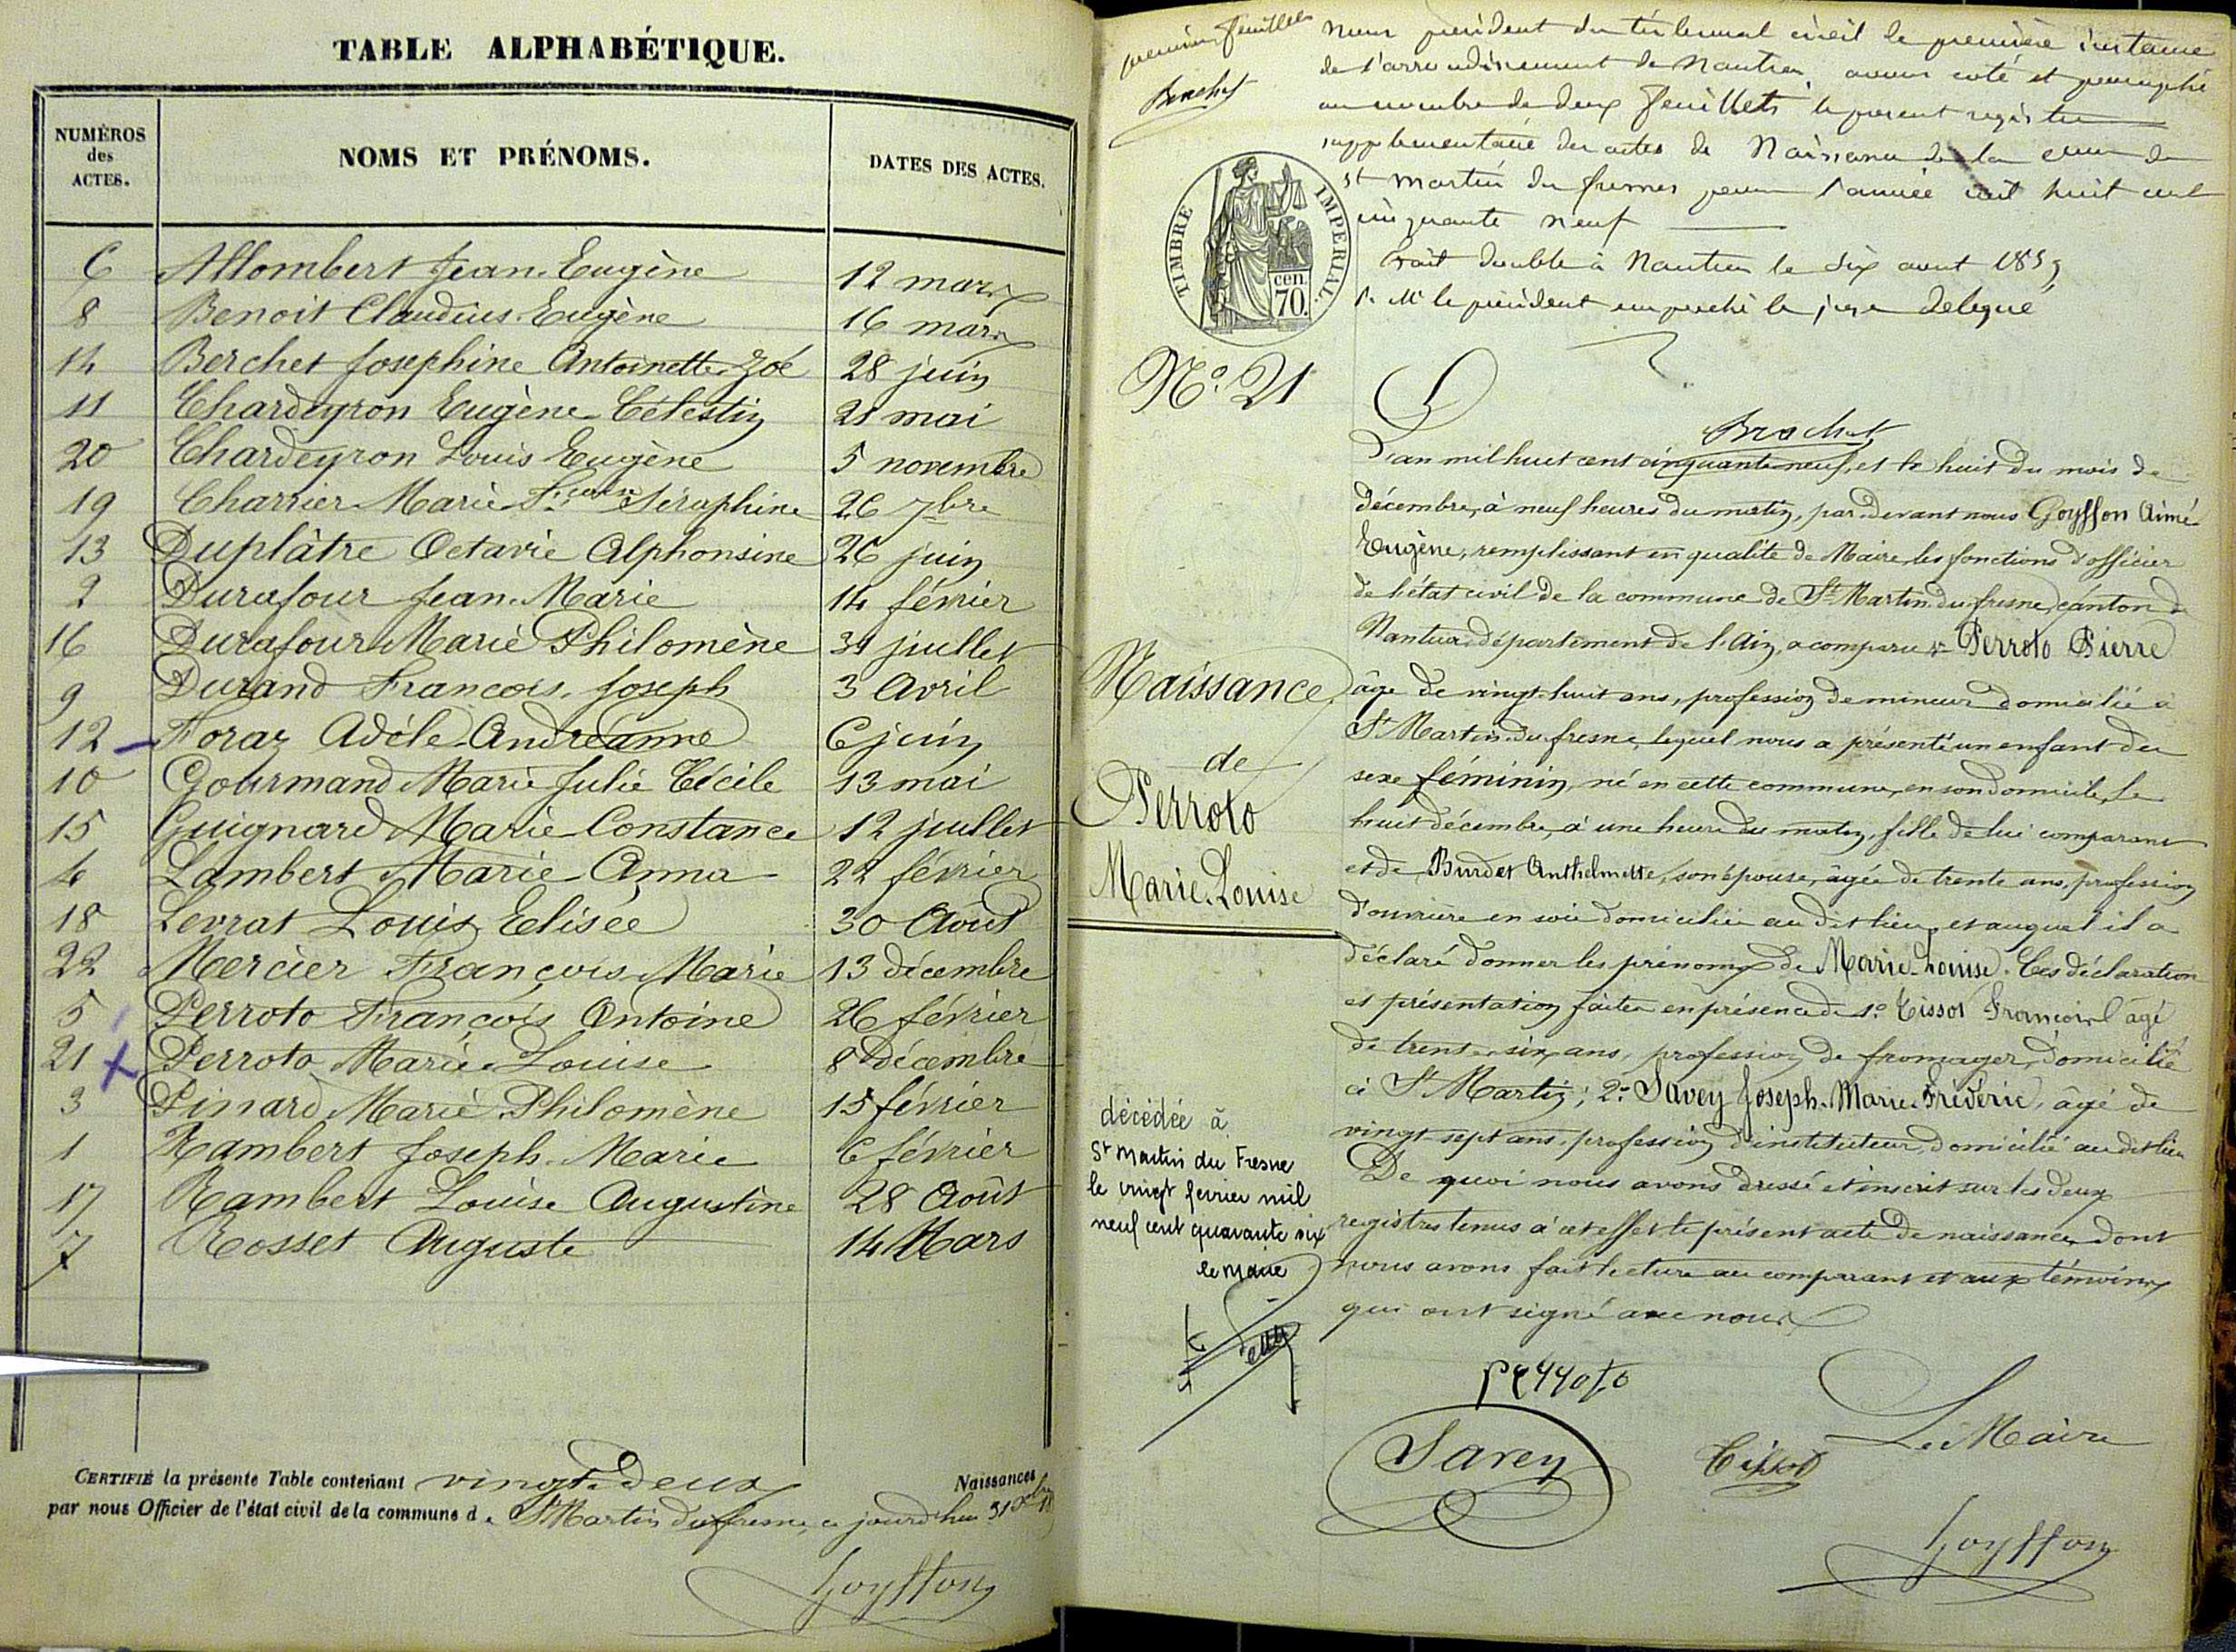 TABLE ALPHABÉTIQUE.
NUMÉROS des ACTES.
NOMS ET PRÉNOMS.
DATES DES ACTES.
6 Allombert Jean-Eugène 12 mars
8 Benoit Claudius-Eugène 16 mars
14 Berchet Josephine Antoinette Zoé 28 juin
11 Chardeyron Eugène Célestin 21 mai
20 Chardeyron Louis Eugène 5 novembre
19 Charrier Marie Séraphine 26 7bre
13 Duplâtre Octavie Alphonsine 26 juin
2 Durafour Jean-Marie 14 février
16 Durafour Marie Philomène 31 juillet
9 Durand François-Joseph 3 Avril
12 Foraz Adèle-Andréanne 6 juin
10 Gourmand Marie Julie Cécile 13 mai
15 Guignard Marie-Constance 12 juillet
4 Lambert Marie-Anna 22 février
18 Levrat Louis Elisée 30 Août
22 Mercier François-Marie 13 décembre
5 Perroto François Antoine 26 février
21 Perroto Marie-Louise 8 décembre
3 Pinard Marie-Philomène 15 février
1 Rambert Joseph-Marie 6 février
17 Rambert Louise Augustine 28 Août
7 Rosset Auguste 14 Mars
CERTIFIÉ la présente Table contenant vingt-deux Naissances
par nous Officier de l'état civil de la commune de St Martin du fresne, ce jourd'hui 31
Goyffon
premier feuillet
Brochet
Nous président du tribunal civil de première instance
de l'arrondissement de Nantua, avons coté et paraphé
au nombre de deux feuillets le present registre
supplementaire des actes de Naissance de la
st martin du fresnes pour l'année mil huit cent
cinquante neuf
fait double à Nantua le six aout 1859
Mr le président empeché le juge delegué
Brochet
TIMBRE IMPERIAL.
70. cen
No. 21
L'an mil huit cent cinquante neuf, et le huit du mois de
décembre, à neuf heures du matin, par-devant nous Goyffon Aimé
Eugène, remplissant en qualité de Maire les fonctions d'officier
de l'état civil de la commune de St Martin du fresne, canton de
Nantua, département de l'Ain, a comparu sr Perroto Pierre
âgé de vingt-huit ans, profession de mineur domicilié à
St Martin du fresne, lequel nous a présenté un enfant du
sexe féminin, né en cette commune, en son domicile, le
huit décembre, à une heure du matin, fille de lui comparant
et de Burdet Anthelmette, son épouse, âgée de trente ans, profession
d'ouvrière en soie domiciliée au dit lieu, et auquel il a
déclaré donner les prénoms de Marie-Louise. Ces déclaration
et présentation faites en présence de 1o. Tissot François âgé
de trente-six ans, profession de fromager, domicilié
à St Martin; 2o Savey Joseph-Marie-Fréderic, âgé de
vingt-sept ans, profession d'instituteur, domicilié au dit lieu
De quoi nous avons dressé et inscrit sur les deux
registres tenus à cet effet le présent acte de naissance, dont
nous avons fait lecture au comparant et aux témoins
qui ont signé avec nous
Naissance
de
Perroto
Marie-Louise
décédée à
St Martin du Fresne
le vingt fevrier mil
neuf cent quarante six
le Maire
perroto
Savey
Tissot
Le Maire
Goyffon